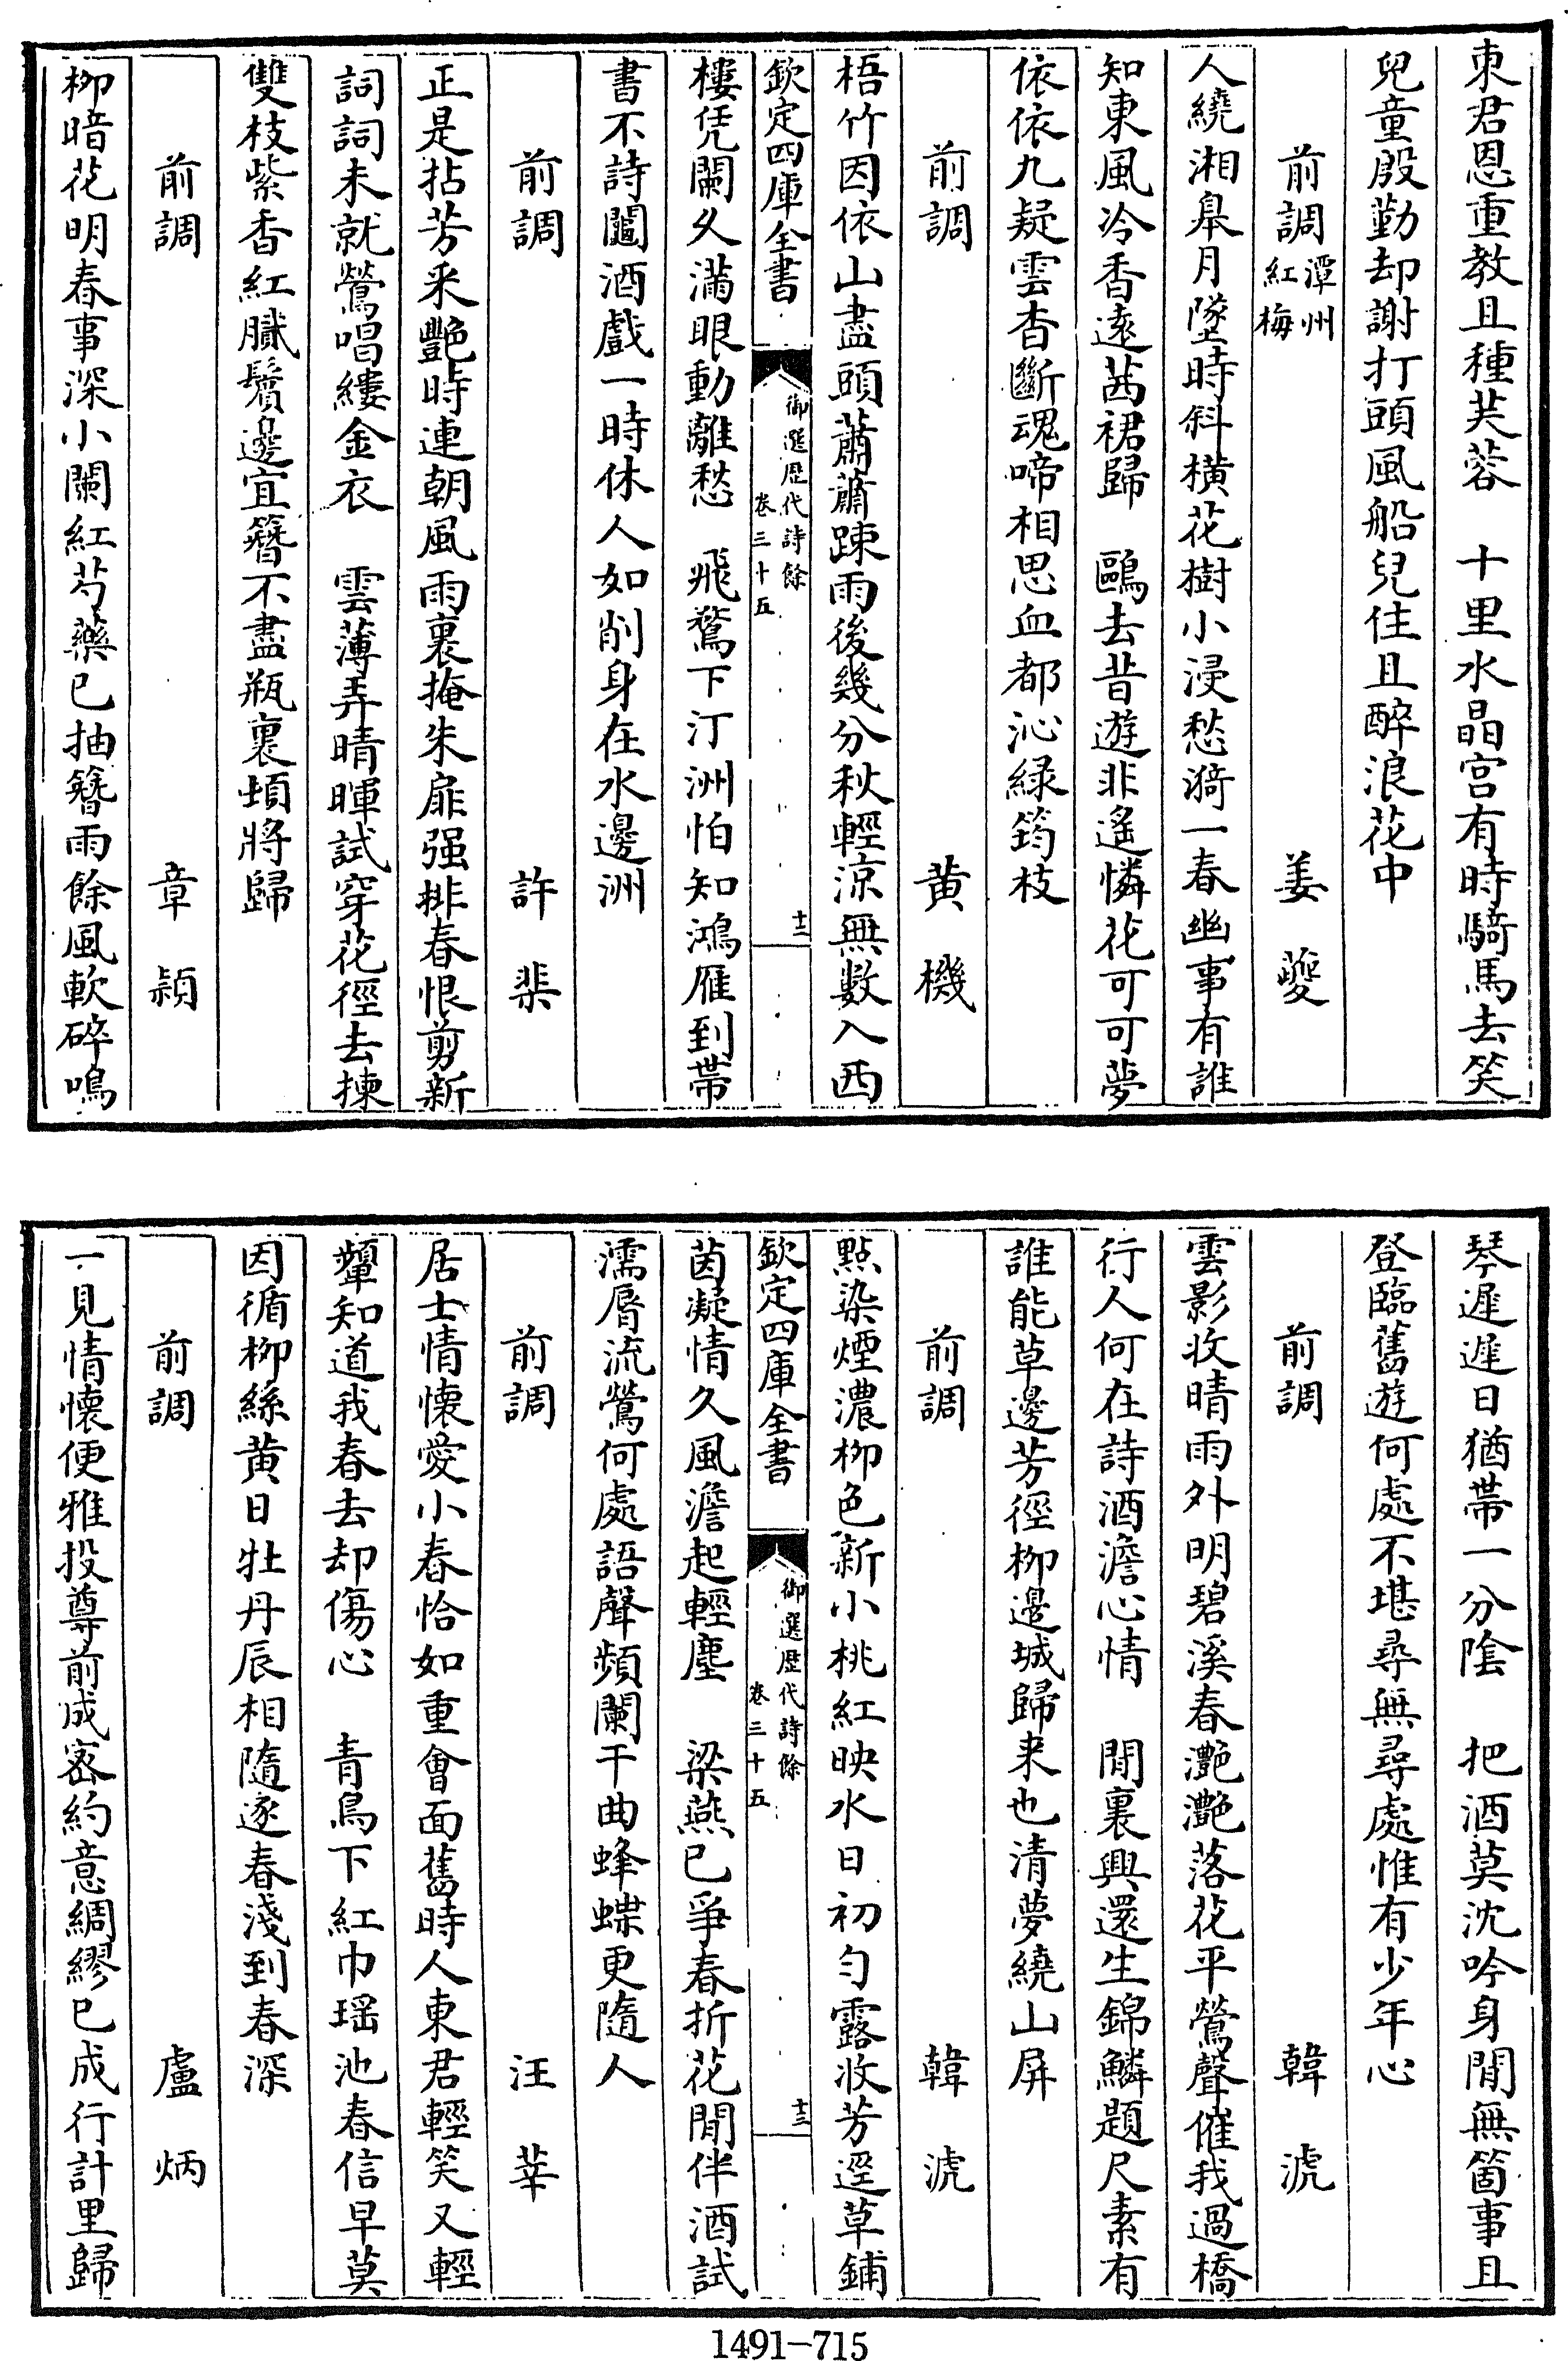 東君恩重教且種芙蓉　十里水晶宮有時騎馬去笑
兒童殷勤却謝打頭風船兒住且醉浪花中
前調潭州紅梅　姜夔
人繞湘臯月墜時斜橫花樹小浸愁漪一春幽事有誰
知東風冷香遠茜裙歸　鷗去昔遊非遙憐花可可夢
依依九疑雲杳斷魂啼相思血都沁緑筠枝
前調　黄機
梧竹因依山盡頭蕭蕭踈雨後幾分秋輕涼無數入西
欽定四庫全書　御選歴代詩餘　卷三十五　十二
樓凭闌久滿眼動離愁　飛鶩下汀洲怕知鴻雁到帶
書不詩闘酒戲一時休人如削身在水邊洲
前調　許棐
正是拈芳采艷時連朝風雨裏掩朱扉强排春恨剪新
詞詞未就鶯唱縷金衣　雲薄弄晴暉試穿花徑去揀
雙枝紫香紅膩鬢邊宜簪不盡瓶裏頓將歸
前調　章穎
栁暗花明春事深小闌紅芍藥已抽簪雨餘風軟碎鳴
琴遲遲日猶帶一分陰　把酒莫沈吟身閒無箇事且
登臨舊遊何處不堪尋無尋處惟有少年心
前調　韓淲
雲影收晴雨外明碧溪春灧灧落花平鶯聲催我過橋
行人何在詩酒澹心情　閒裏興還生錦鱗題尺素有
誰能草邊芳徑栁邊城歸来也清夢繞山屏
前調　韓淲
點染煙濃栁色新小桃紅映水日初勻露收芳逕草鋪
欽定四庫全書　御選歴代詩餘　卷三十五　十三
茵凝情久風澹起輕塵　梁燕已爭春折花閒伴酒試
濡脣流鶯何處語聲頻闌干曲蜂蝶更隨人
前調　汪莘
居士情懷愛小春恰如重會面舊時人東君輕笑又輕
顰知道我春去却傷心　青鳥下紅巾瑶池春信早莫
因循栁絲黄日牡丹辰相隨逐春淺到春深
前調　盧炳
一見情懷便雅投尊前成宻約意綢繆已成行計里歸
1491-715